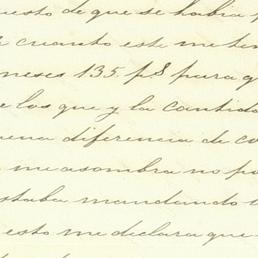 uesto de que se había p
cuanto este me ten
meses 135. p$ para q
e los que y la cantida
uena diferencia de co
me asombra no po
staba mandando
esto me declara que